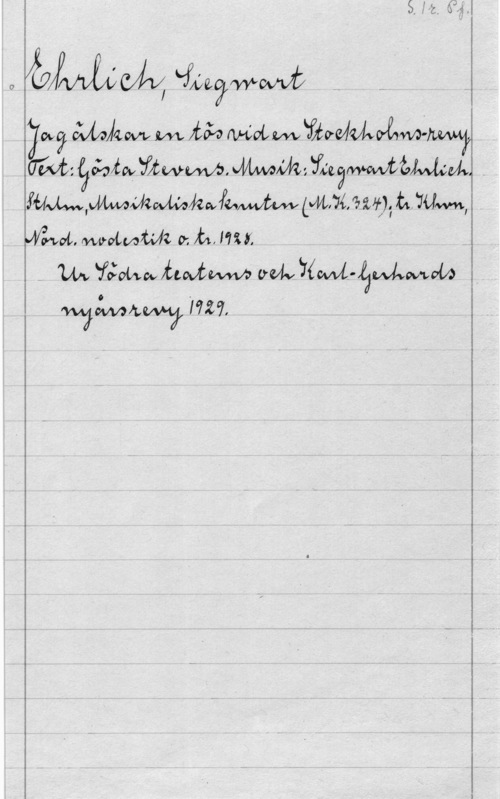 S. 1 r. Pf.
Ehrlich, Siegwart
Jag älskar en tös vid en Stockholms-revy
Text: Gösta Stevens. Musik: Siegwart Ehrlich.
Sthlm, Musikaliska knuten (M.K. 324); tr. Khvn,
Nord. nodestik o. tr. 1928.
Ur Södra teaterns och Karl-Gerhards
nyårsrevy 1929.